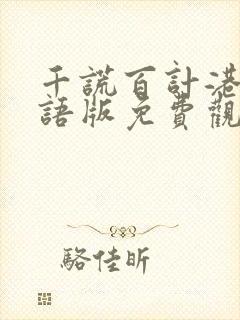 千謊百計港
語版免費觀
駱佳昕